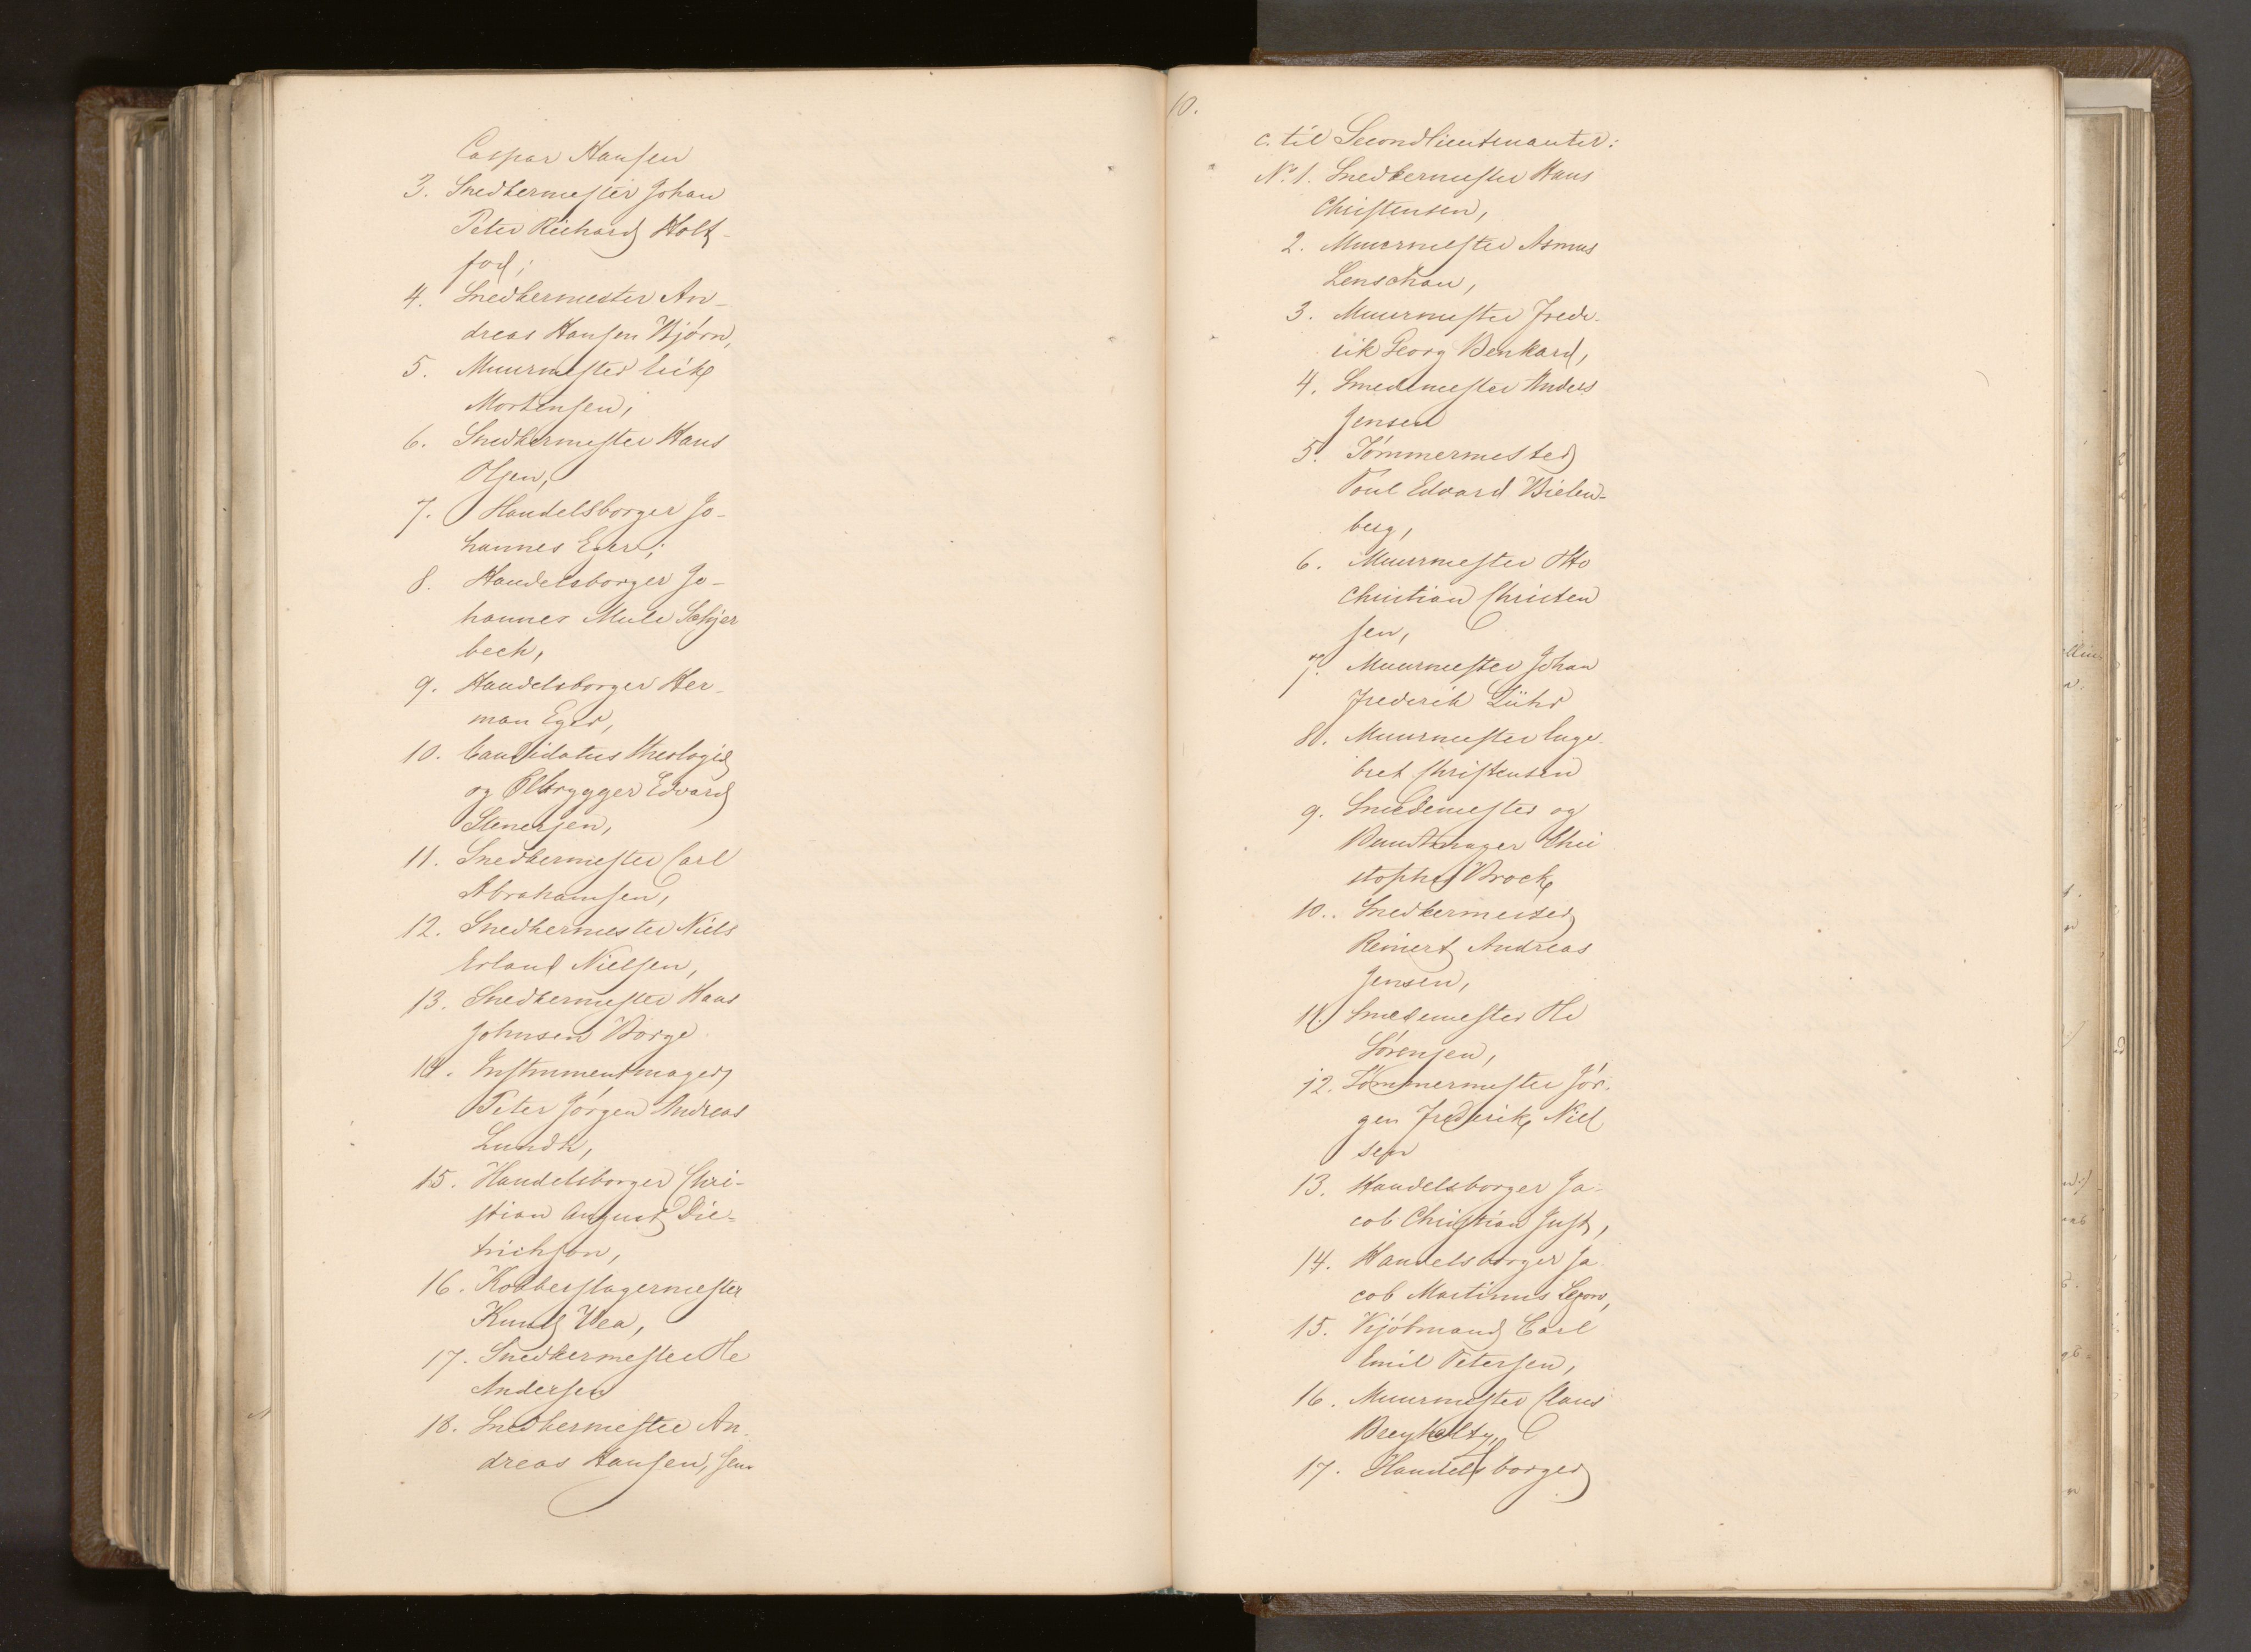 Caspar Hansen
3. Snedkermester Johan
Peter Richard Holt-
fod;
4. Snedkermester An-
dreas Hansen Bjørn,
5. Muurmester Erik
Mortensen;
6. Snedkermester Hans
Olsen,
7. Handelsborger Jo-
hannes Eger;
8. Handelsborger Jo-
hannes Mule
beck,
9. Handelsborger Her-
man Eger,
10. Candidatus theologiæ
og Ølbrygger Edvard
Stenersen,
11. Snedkermester Carl
Abrahamsen,
12. Snedkermester Niels
Erland Nielsen,
13. Snedkermester Hans
Johnsen Borge
14. Instrumentmager
Peter Jørgen Andreas
Lundh,
15. Handelsborger Chri-
stian August Die-
trichson,
16. Kobberslagermester
Knud Wea,
17. Snedkermester Ole
Andersen
18. Snedkermester An-
dreas Hansen, Senr
10.
c. til Secondlieutenanter:
No 1. Snedkermester Hans
Christensen,
2. Muurmester Asmus
Lenschau,
3. Muurmester Frede-
rik Georg Benkard,
4. Smedemester Anders
Jensen
5. Tømmermester
Poul Edvard Bielen-
berg,
6. Muurmester Otto
Christian Christen
sen,
7. Muurmester Johan
Frederik Lühr
8. Muurmester Enge
bret Christensen
9. Smedemester og
Bundtmager Chri
stopher Brock
10. Snedkermester
Reinert Andreas
Jensen,
11. Smedemester Ole
Sørensen,
12. Tømmermester Jør-
gen Frederik Niel
sen
13. Handelsborger Ja-
cob Christian Just,
14. Handelsborger Ja
cob Martinus
15. Kjøbmand Carl
Emil Petersen,
16. Muurmester Claus
Breyholtz,
17. Handelsborger